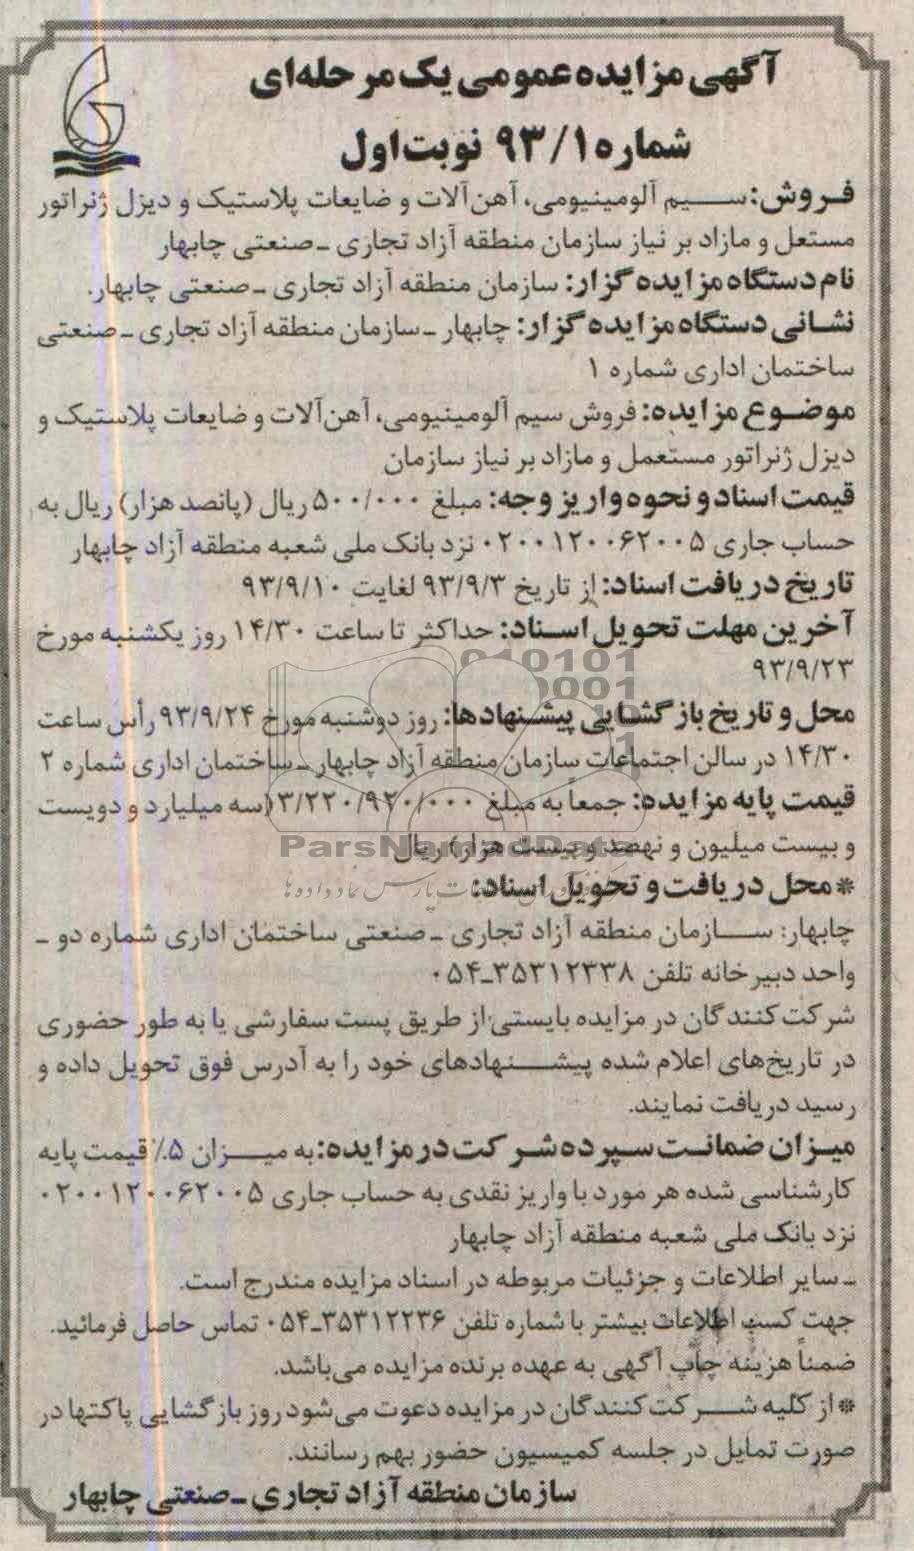 آگهی مزایده عمومی یک مرحله‌ای
شماره ۹۳/۱ نوبت اول
فروش: سیم آلومینیومی، آهن‌آلات و ضایعات پلاستیک و دیزل ژنراتور
مستعل و مازاد بر نیاز سازمان منطقه آزاد تجاری ـ صنعتی چابهار
نام دستگاه مزایده گزار: سازمان منطقه آزاد تجاری ـ صنعتی چابهار.
نشانی دستگاه مزایده گزار: چابهار ـ سازمان منطقه آزاد تجاری ـ صنعتی
ساختمان اداری شماره ۱
موضوع مزایده: فروش سیم آلومینیومی، آهن‌آلات و ضایعات پلاستیک و
دیزل ژنراتور مستعمل و مازاد بر نیاز سازمان
قیمت اسناد و نحوه واریز وجه: مبلغ ۵۰۰/۰۰۰ ریال (پانصد هزار) ریال به
حساب جاری ۰۲۰۰۱۲۰۰۶۲۰۰۵ نزد بانک ملی شعبه منطقه آزاد چابهار
تاریخ دریافت اسناد: از تاریخ ۹۳/۹/۳ لغایت ۹۳/۹/۱۰
آخرین مهلت تحویل اسناد: حداکثر تا ساعت ۱۴/۳۰ روز یکشنبه مورخ
۹۳/۹/۲۳
محل و تاریخ بازگشایی پیشنهادها: روز دوشنبه مورخ ۹۳/۹/۲۴ رأس ساعت
۱۴/۳۰ در سالن اجتماعات سازمان منطقه آزاد چابهار ـ ساختمان اداری شماره ۲
قیمت پایه مزایده: جمعاً به مبلغ ۳/۲۲۰/۹۲۰/۰۰۰ (سه میلیارد و دویست
و بیست میلیون و نهصد و بیست هزار) ریال
ParsNamadData
* محل دریافت و تحویل اسناد:
چابهار: سازمان منطقه آزاد تجاری ـ صنعتی ساختمان اداری شماره دو ـ
واحد دبیرخانه تلفن ۳۵۳۱۲۳۳۸ـ۰۵۴
شرکت کنندگان در مزایده بایستی از طریق پست سفارشی یا به طور حضوری
در تاریخ‌های اعلام شده پیشنهادهای خود را به آدرس فوق تحویل داده و
رسید دریافت نمایند.
میزان ضمانت سپرده شرکت در مزایده: به میزان ۵٪ قیمت پایه
کارشناسی شده هر مورد با واریز نقدی به حساب جاری ۰۲۰۰۱۲۰۰۶۲۰۰۵
نزد بانک ملی شعبه منطقه آزاد چابهار
ـ سایر اطلاعات و جزئیات مربوطه در اسناد مزایده مندرج است.
جهت کسب اطلاعات بیشتر با شماره تلفن ۳۵۳۱۲۲۳۶ـ۰۵۴ تماس حاصل فرمائید.
ضمناً هزینه چاپ آگهی به عهده برنده مزایده می‌باشد.
* از کلیه شرکت کنندگان در مزایده دعوت می‌شود روز بازگشایی پاکتها در
صورت تمایل در جلسه کمیسیون حضور بهم رسانند.
سازمان منطقه آزاد تجاری ـ صنعتی چابهار